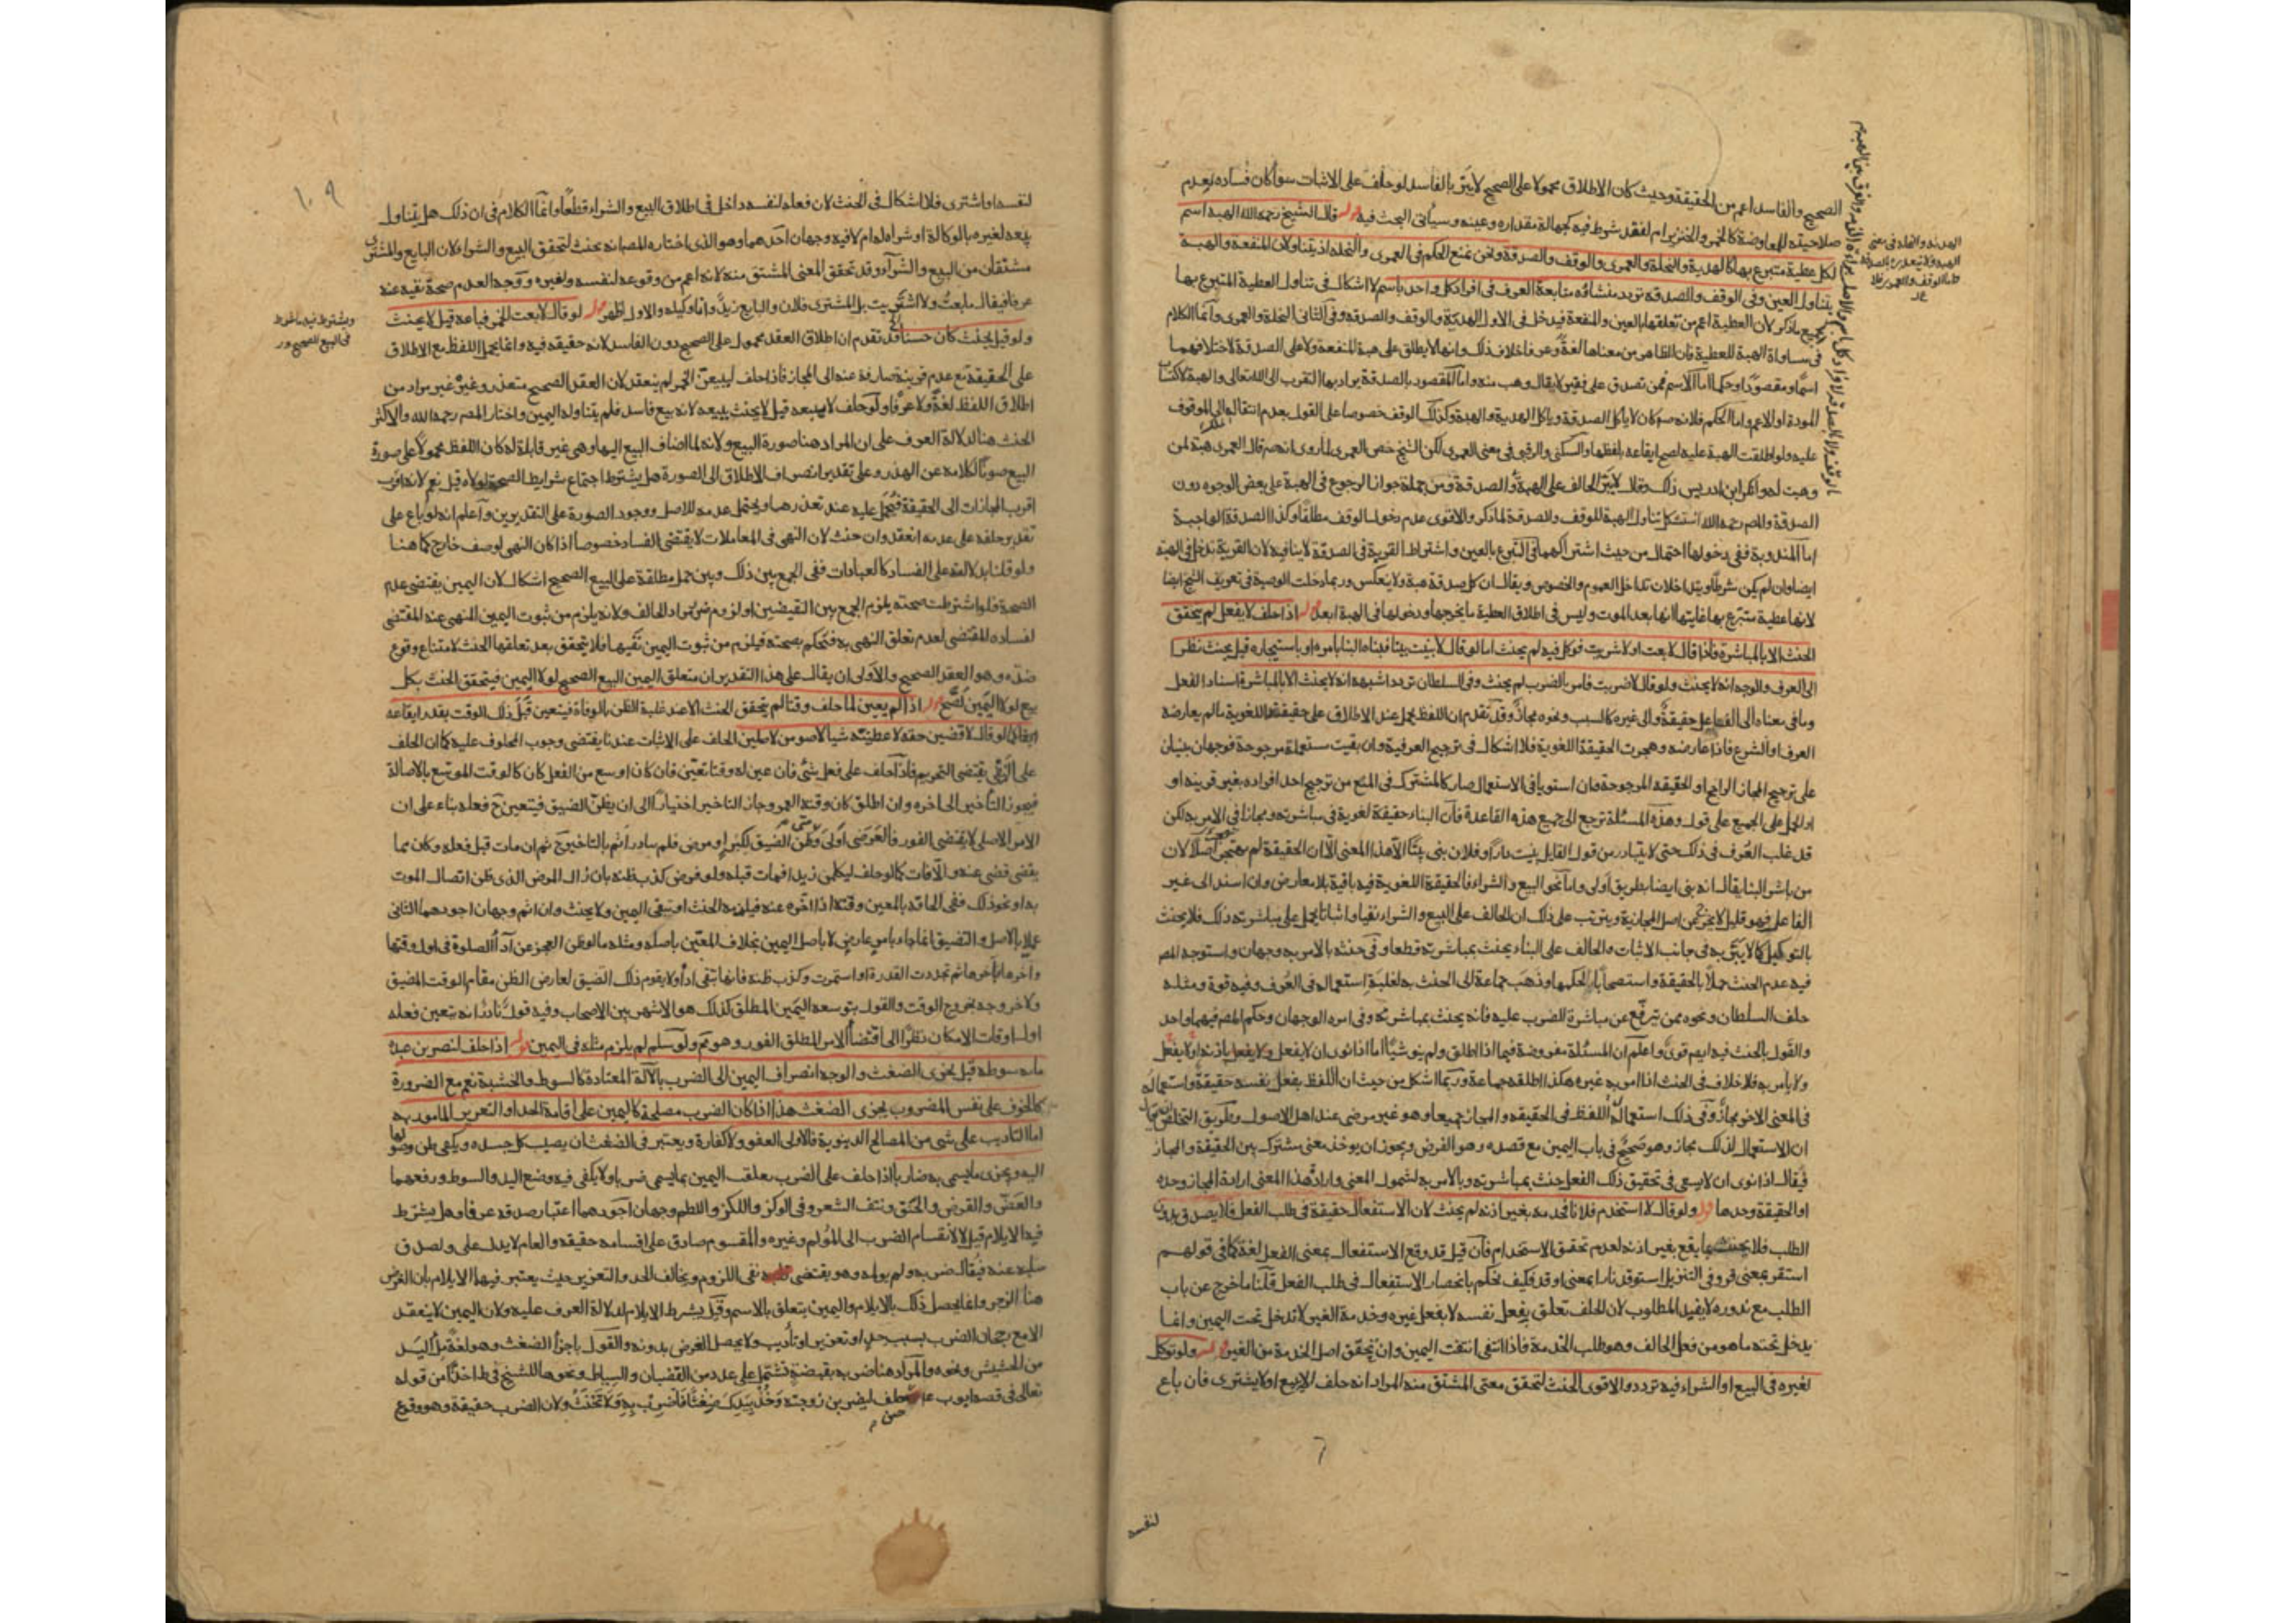 الصحيح والفاسد اعم من الحقيقة وحيث كان الاطلاق محمولا على الصحيح لا يبرّ بالفاسد لو حلف على الاثبات سواء كان فساده لعدم
صلاحيته للمعاوضة كالخمر والخنزير ام لفقد شرط فيه كجهالة مقداره وعينه وسيأتي البحث فيه قوله قال الشيخ رحمه الله الهبة اسم
لكل عطية متبرع بها كالهدية والنحلة والعمرى والوقف والصدقة ونحن نمنع الحكم في العمرى والنحلة اذ يتناولان المنفعة والهبة
يتناول العين وفي الوقف والصدقة تردد منشاؤه متابعة العرف في افراد كل واحد باسم لا اشكال في تناول العطية المتبرع بها
لجميع ما ذكر لان العطية اعم من تعلقها بالعين والمنفعة فيدخل في الاول الهدية والوقف والصدقة وفي الثاني النحلة والعمرى وانما الكلام
في مساواة الهبة للعطية فان الظاهر من معناها لغة وعرفا خلاف ذلك وانها لا يطلق على هبة المنفعة ولا على الصدقة لاختلافهما
اسما ومقصودا وحكما اما الاسم فمن تصدق على فقير لا يقال وهب منه واما المقصود بالصدقة يراد بها التقرب الى الله تعالى والهبة لاكتساب
المودة او الاعم واما الحكم فلانه ص كان لا ياكل الصدقة وياكل الهدية والهبة وكذلك الوقف خصوصا على القول بعدم انتقاله الى الموقوف
عليه ولو اطلقت الهبة عليه لصح ايقاعه بلفظها والسكنى والرقبى في معنى العمرى لكن الشيخ خص العمرى لما روى انه ص قال العمرى هبة لمن
وهبت له وانكر ابن ادريس ذلك وقال لا يبرّ الحالف على الهبة والصدقة ومن جملة جواز الرجوع في الهبة على بعض الوجوه دون
الصدقة والمص رحمه الله استشكل تناول الهبة للوقف والصدقة لما ذكر والاقوى عدم دخول الوقف مطلقا وكذا الصدقة الواجبة
اما المندوبة ففي دخولها احتمال من حيث اشتراكهما في التبرع بالعين واشتراط القربة في الصدقة لا ينافيه لان القربة تدخل في الهبة
ايضا وان لم يكن شرطا ويتداخلان تداخل العموم والخصوص ويقال ان كل صدقة هبة ولا ينعكس وربما دخلت الوصية في تعريف الشيخ ايضا
لانها عطية متبرع بها غايتها انها بعد الموت وليس في اطلاق العطية ما يخرجها ودخولها في الهبة ابعد قوله اذا حلف لا يفعل لم يتحقق
الحنث الا بالمباشرة فاذا قال لا بعت او لا شريت فوكل فيه لم يحنث اما لو قال لا بنيت بيتا فبناه البناء بامره او باستيجاره قيل يحنث نظرا
الى العرف والوجه انه لا يحنث ولو قال لا ضربت فامر بالضرب لم يحنث وفي السلطان تردد اشبهه انه لا يحنث الا بالمباشرة اسناد الفعل
وما في معناه الى الفاعل حقيقة والى غيره كالسبب ونحوه مجاز وقد تقدم ان اللفظ يحمل عند الاطلاق على حقيقته اللغوية ما لم يعارضه
العرف او الشرع فاذا عارضه وهجرت الحقيقة اللغوية فلا اشكال في ترجيح العرفية وان بقيت مستعملة مرجوحة فوجهان مبنيان
على ترجيح المجاز الراجح او الحقيقة المرجوحة وان استويا في الاستعمال صار كالمشترك في المنع من ترجيح احد افراده بغير قرينة او
او الحمل على الجميع على قول وهذه المسئلة ترجع الى جميع هذه القاعدة فان البناء حقيقة لغوية في مباشرته ومجاز في الامر به لكن
قد غلب العرف في ذلك حتى لا يتبادر من قول القايل بنيت دارا وفلان بنى بيتا الا هذا المعنى الا ان الحقيقة لم تهجر اصلا لان
من باشر البنا يقال انه بنى ايضا بطريق اولى واما نحو البيع والشراء فالحقيقة اللغوية فيه باقية بلا معارض وان اسند الى غير
الفاعل فهو قليل لا يخرج عن اصل المجازية ويترتب على ذلك ان الحالف على البيع والشراء نفيا واثباتا يحمل على مباشرته ذلك فلا يحنث
بالتوكيل كما لا يبرّ به في جانب الاثبات والحالف على البناء يحنث بمباشرته قطعا وفي حنثه بالامر به وجهان واستوجه المص
فيه عدم الحنث حملا بالحقيقة واستصحابا لحكمها وذهب جماعة الى الحنث به لغلبة استعماله في العرف وفيه قوة ومثله
حلف السلطان ونحوه ممن يترفع عن مباشرة الضرب عليه فانه يحنث بمباشرته وفي امره الوجهان وحكم المص فيهما واحد
والقول بالحنث فيه ايضا قوى واعلم ان المسئلة مفروضة فيما اذا اطلق ولم ينو شيئا اما اذا نوى ان لا يفعل ولا يفعل باذنه او لا يفعل
ولا يأمر به فلا خلاف في الحنث اذا امر به غيره هكذا اطلقه جماعة وربما اشكل من حيث ان اللفظ بفعل نفسه حقيقة واستعماله
في المعنى الاخر مجاز وفي ذلك استعمال اللفظ في الحقيقة والمجاز جميعا وهو غير مرضى عند اهل الاصول وطريق التخلص
ان الاستعمال لذلك مجاز وهو صحيح في باب اليمين مع قصده وهو الفرض ويجوز ان يوخذ معنى مشترك بين الحقيقة والمجاز
فيقال اذا نوى ان لا يسعى في تحقيق ذلك الفعل حنث بمباشرته وبالامر به لشمول المعنى وارادة هذا المعنى ارادة المجاز وحده
او الحقيقة وحدها قوله ولو قال لا استخدم فلانا فخدمه بغير اذنه لم يحنث لان الاستفعال حقيقة في طلب الفعل فلا يصدق بدون
الطلب فلا يحنث بما يقع بغير اذنه لعدم تحقق الاستخدام فان قيل قد وقع الاستفعال بمعنى الفعل لغة كما في قولهم
استقر بمعنى قر وفي التنزيل استوقد نارا بمعنى اوقد فكيف يحكم بانحصار الاستفعال في طلب الفعل قلنا ما خرج عن باب
الطلب مع ندوره لا يفيد المطلوب لان الحلف تعلق بفعل نفسه لا بفعل غيره وخدمة الغير لا تدخل تحت اليمين وانما
يدخل تحته ما هو من فعل الحالف وهو طلب الخدمة فاذا انتفى انتفت اليمين وان تحقق اصل الخدمة من الغير قوله ولو توكل
لغيره في البيع او الشراء فيه تردد والاقوى الحنث لتحقق معنى المشتق منه المراد انه حلف لا يبيع او لا يشترى فان باع
لنفسه
١٠٩
لنفسه او اشترى فلا اشكال في الحنث لان فعله لنفسه داخل في اطلاق البيع والشراء قطعا وانما الكلام في ان ذلك هل يتناول
بيعه لغيره بالوكالة او شراه له ام لا فيه وجهان احدهما وهو الذى اختاره المص انه يحنث لتحقق البيع والشراء لان البايع والمشترى
مشتقان من البيع والشراء وقد تحقق المعنى المشتق منه لانه اعم من وقوعه لنفسه ولغيره ووجه العدم صحة نفيه عنه
عرفا فيقال ما بعت ولا اشتريت بل المشترى فلان والبايع زيد وانا وكيله والاول اظهر قوله لو قال لا بعت الخمر فباعه قيل لا يحنث
ولو قيل يحنث كان حسنا قد تقدم ان اطلاق العقد محمول على الصحيح دون الفاسد لانه حقيقة فيه وانما يحمل اللفظ مع الاطلاق
على الحقيقة مع عدم قرينة صارفة عنه الى المجاز فاذا حلف ليبيعن الخمر لم ينعقد لان العقد الصحيح متعذر وغيره غير مراد من
اطلاق اللفظ لغة ولا عرفا ولو حلف لا يبيعه قيل لا يحنث ببيعه لانه بيع فاسد فلم يتناوله اليمين واختار المص رحمه الله والاكثر
الحنث هنا لدلالة العرف على ان المراد هنا صورة البيع ولانه لما اضاف البيع اليها وهى غير قابلة له كان اللفظ محمولا على صورة
البيع صونا لكلامه عن الهذر وعلى تقدير انصراف الاطلاق الى الصورة هل يشترط اجتماع شرايط الصحة لولاه قيل نعم لانه اقرب
اقرب المجازات الى الحقيقة فيحمل عليه عند تعذرها ويحتمل عدمه للاصل ووجود الصورة على التقديرين واعلم انه لو باع على
تقدير حلفه على عدمه انعقد وان حنث لان النهى في المعاملات لا يقتضى الفساد خصوصا اذا كان النهى لوصف خارج كما هنا
ولو قلنا بدلالته على الفساد كالعبادات ففى الجمع بين ذلك وبين حمل مطلقه على البيع الصحيح اشكال لان اليمين يقتضى عدم
الصحة فلو اشترطت صحته يلزم الجمع بين النقيضين او لزوم ضرر مراد للحالف ولانه يلزم من ثبوت اليمين النهى عنه المقتضى
لفساده المقتضى لعدم تعلق النهى به فتحكم بصحته فيلزم من ثبوت اليمين نفيها فلا يتحقق بعد تعلقها الحنث لامتناع وقوع
ضده وهو العقد الصحيح والاولى ان يقال على هذا التقدير ان متعلق اليمين البيع الصحيح لولا اليمين فيتحقق الحنث بكل
بيع لولا اليمين لصح قوله اذا لم يعين لما حلف وقتا لم يتحقق الحنث الا عند غلبة الظن بالوفاة فيتعين قبل ذلك الوقت بقدر ايقاعه
ايقاعا كما لو قال لاقضين حقه لاعطينه شيئا لاصومن لاصلين الحلف على الاثبات عندنا يقتضى وجوب المحلوف عليه كما ان الحلف
على النفى يقتضى التحريم فاذا حلف على فعل شئ فان عين له وقتا تعين فان كان اوسع من الفعل كان كالوقت الموسع بالاصالة
فيجوز التأخير الى اخره وان اطلق كان وقته العمر وجاز التاخير اختيارا الى ان يظن الضيق فيتعين ح فعله بناء على ان
الامر الاصلى لا يقتضى الفور فالعرضى اولى ومتى ظن الضيق لكبر او مرض فلم يبادر اثم بالتاخير ثم ان مات قبل فعله وكان مما
يقضى قضى عنه والا فات كما لو حلف ليكلمن زيدا فمات قبله ولو فرض كذب ظنه بان زال المرض الذى ظن اتصال الموت
به او نحو ذلك ففى الحاقه بالمعين وقته اذا اخره عنه فيلزمه الحنث او تبقى اليمين ولا يحنث وان اثم وجهان اجودهما الثانى
عملا بالاصل والتضيق انما جاء بامر عارض لا باصل اليمين بخلاف المعين باصله ومثله ما لو ظن العجز عن آداء الصلوة في اول وقتها
وآخرها فأخرها ثم تجددت القدرة او استمرت وكذب ظنه فانها تبقى اداء ولا يقوم ذلك الضيق لعارض الظن مقام الوقت المضيق
ولآخر وجه بخروج الوقت والقول بتوسعة اليمين المطلق كذلك هو الاشهر بين الاصحاب وفيه قول نادر انه يتعين فعله
اول اوقات الامكان نظرا الى اقتضاء الامر المطلق الفور وهو مم ولو سلم لم يلزم مثله في اليمين قوله اذا حلف لنضربن عبده
مأة سوط قيل يجزى الضغث والوجه انصراف اليمين الى الضرب بالآلة المعتادة كالسوط والخشبة نعم مع الضرورة
كالخوف على نفس المضروب يجزى الضغث هذا اذا كان الضرب مصلحة كاليمين على اقامة الحد او التعزير المامور به
اما التاديب على شى من المصالح الدنيوية فالاولى العفو ولا كفارة ويعتبر في الضغث ان يصيب كل جسده ويكفى ظن وصولها
اليه ويجزى ما يسمى به ضاربا اذا حلف على الضرب تعلقت اليمين بما يسمى ضربا ولا يكفى فيه وضع اليد والسوط ورفعهما
والعض والقرض والخنق ونتف الشعر وفي الوكز واللكز واللطم وجهان اجودهما اعتبار صدقه عرفا وهل يشترط
فيه الايلام قيل لا لانقسام الضرب الى المؤلم وغيره والمقسوم صادق على اقسامه حقيقة والعام لا يدل على ولصدق
سلبه عنه فيقال ضربه ولم يولمه وهو يقتضى نفى اللزوم ويخالف الحد والتعزير حيث يعتبر فيهما الايلام بان الغرض
هنا الزجر وانما يحصل ذلك بالايلام واليمين يتعلق بالاسم وقيل يشترط الايلام لدلالة العرف عليه ولان اليمين لا ينعقد
الا مع رجحان الضرب بسبب حد او تعزير او تأديب ولا يحصل الغرض بدونه والقول باجزاء الضغث وهو لغة ملء اليد
من الحشيش ونحوه والمراد هنا ضربه بقبضة تشتمل على عدد من القضبان والسياط ونحوها للشيخ في ط اخذا من قوله
تعالى في قصة ايوب ع حلف ليضربن زوجته وخذ بيدك ضغثا فاضرب به ولا تحنث ولان الضرب حقيقة وهو وقوع